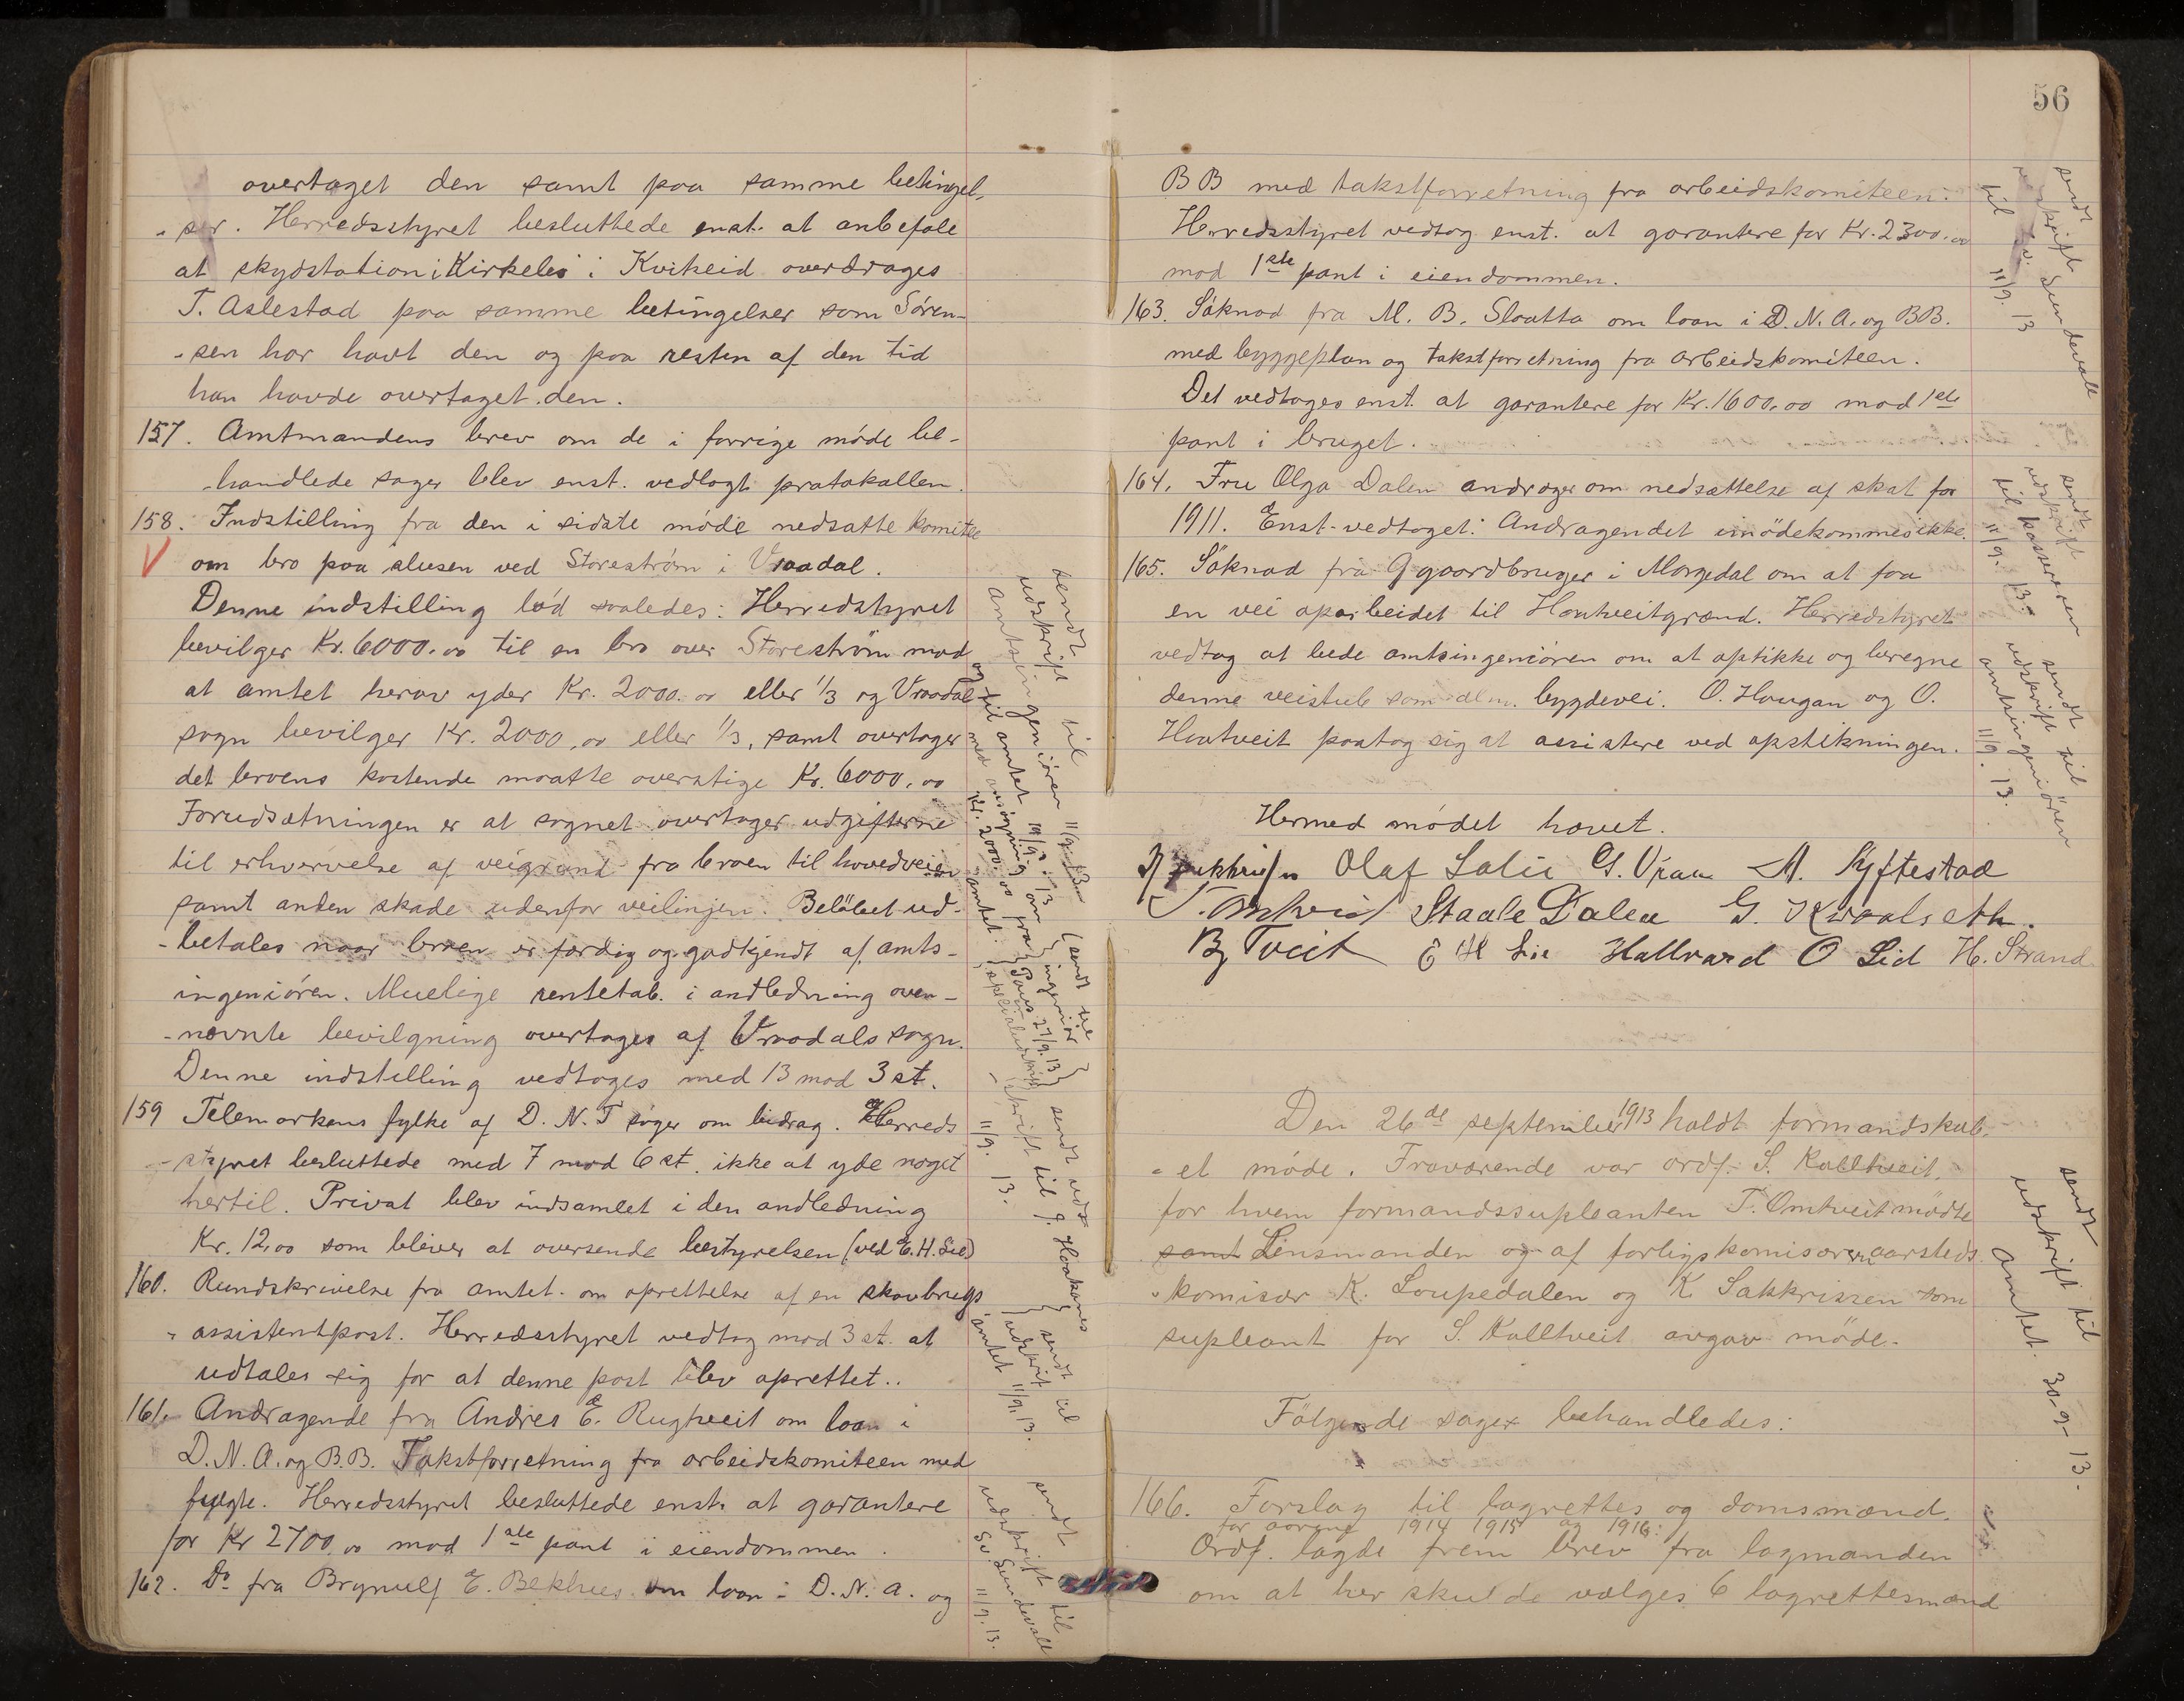 overtaget den samt paa samme betingel-
-ser. Herredsstyret besluttede enst. at anbefale
at skydstation i Kirkebø i Kviteid overdrages
T. Aslestad paa samme betingelser som Søren-
-sen har havt den og paa resten af den tid
han havde overtaget den.
157. Amtmandens brev om de i forrige møde be-
-handlede sager blev enst. vedlagt protokollen.
158. Indstilling fra den i sidste møde nedsatte komite
V om bro paa slusen ved Storestrøm i Vraadal.
Denne indstilling lød saaledes: Herredstyret
bevilger Kr. 6000.00 til en bro over Storestrøm mod
at amtet herav yder Kr. 2000.00 eller 1/3 og Vraadal
sogn bevilger Kr. 2000,00 eller 1/3, samt overtager
det broens kostende maatte overstige Kr. 6000,00
Forudsætningen er at sognet overtager udgifterne
til erhvervelse af veigrund fra broen til hovedveien
samt anden skade udenfor veilinjen. Beløbet ud-
-betales naar broen er færdig og godkjendt af amts-
ingeniøren. Muelige rentetab i andledning oven-
-nævnte bevilgning overtages af Vraadals sogn.
Denne indstilling vedtoges med 13 mod 3 st.
159 Telemarkens fylke af D. N. T søger om bidrag. Herreds
-styret besluttede med 7 mod 6 st. ikke at yde noget
hertil. Privat blev indsamlet i den andledning
Kr. 12,00 som bliver at oversende bestyrelsen (ved E. H. Lie)
160. Rundskrivelse fra amtet om oprettelse af en skovbrugs
-assistentpost. Herredsstyret vedtog mod 3 st. at
udtales sig for at denne post blev oprettet..
161. Andragende fra Andres E. Rugtveit om laan i
D. N. A. og B.B. Takstforretning fra arbeidskomiteen med
fulgte. Herredsstyret besluttede enst. at garantere
for Kr 2700,00 mod 1ste pant i eiendommen.
162. Do fra Brynulf E. Bekhus om laan i D. N. A. og
sendt udskrift til
amtsingeniøren 11/9. 13
og til amtet 19/9. 13
med ansøgning om
Kr. 2000.00 fra amtet.
(sendt
ingeniør
Paus 27/9. 13)
sendt
11/9. 13.
sendt til
amtet 11/9. 13.
sendt
udskrift til
Sv. Sundevall
11/9. 13.
56
BB med takstforretning fra arbeidskomiteen.
Herredsstyret vedtog enst. at garantere for Kr. 2300.00
mod 1ste pant i eiendommen.
163. Søknad fra M. B. Slaatta om laan i D. N. A. og BB.
med byggeplan og takstforretning fra arbeidskomiteen.
Det vedtoges enst. at garantere for Kr. 1600.00 mod 1ste
pant i bruget.
164. Fru Olga Dalen androger om nedsættelse af skat for
1911. Enst. vedtaget: Andragendet imødekommes ikke.
165. Søknad fra 9 gaardbruger i Morgedal om at faa
en vei oparbeidet til Hontveitgrend. Herredstyret
vedtog at bede amtsingeniøren om at opstikke og beregne
denne veistub som alm. bygdevei. O. Haugan og O.
Hontveit paatog sig at assistere ved opstikningen.
Hermed mødet hævet.
Olaf Lalie G. Vraa M. Kyftestad
T. Omtveit Staale Dalen G. Kvaalseth.
B Tveit E H Lie Hallvard O Lid H. Strand
Den 26de september 1913 holdt formandskab-
-et møde. Fraværende var ordf. S. Kalltveit,
for hvem formandssupleanten T. Omtveit mødte
samt Lensmanden og af forligskomisæren aarsteds
-komisær K. Loupedalen og K. Sakkrissen som
supleant for S. Kalltveit avgav møde.
Følgende sager behandledes:
166. Forslag til lagrettes og domsmænd.
for aarene 1914 1915 og 1916:
Ordf. lagde frem brev fra lagmanden
om at her skulde vælges 6 lagrettesmænd
sendt
udskrift
til Sv. Sundevall
11/9. 13
sendt
udskrift
til kassereren
11/9. 13.
sendt til
udskrift
amtsingeniören
11/9. 13.
sendt
udskrift til
amtet. 30-9-13.